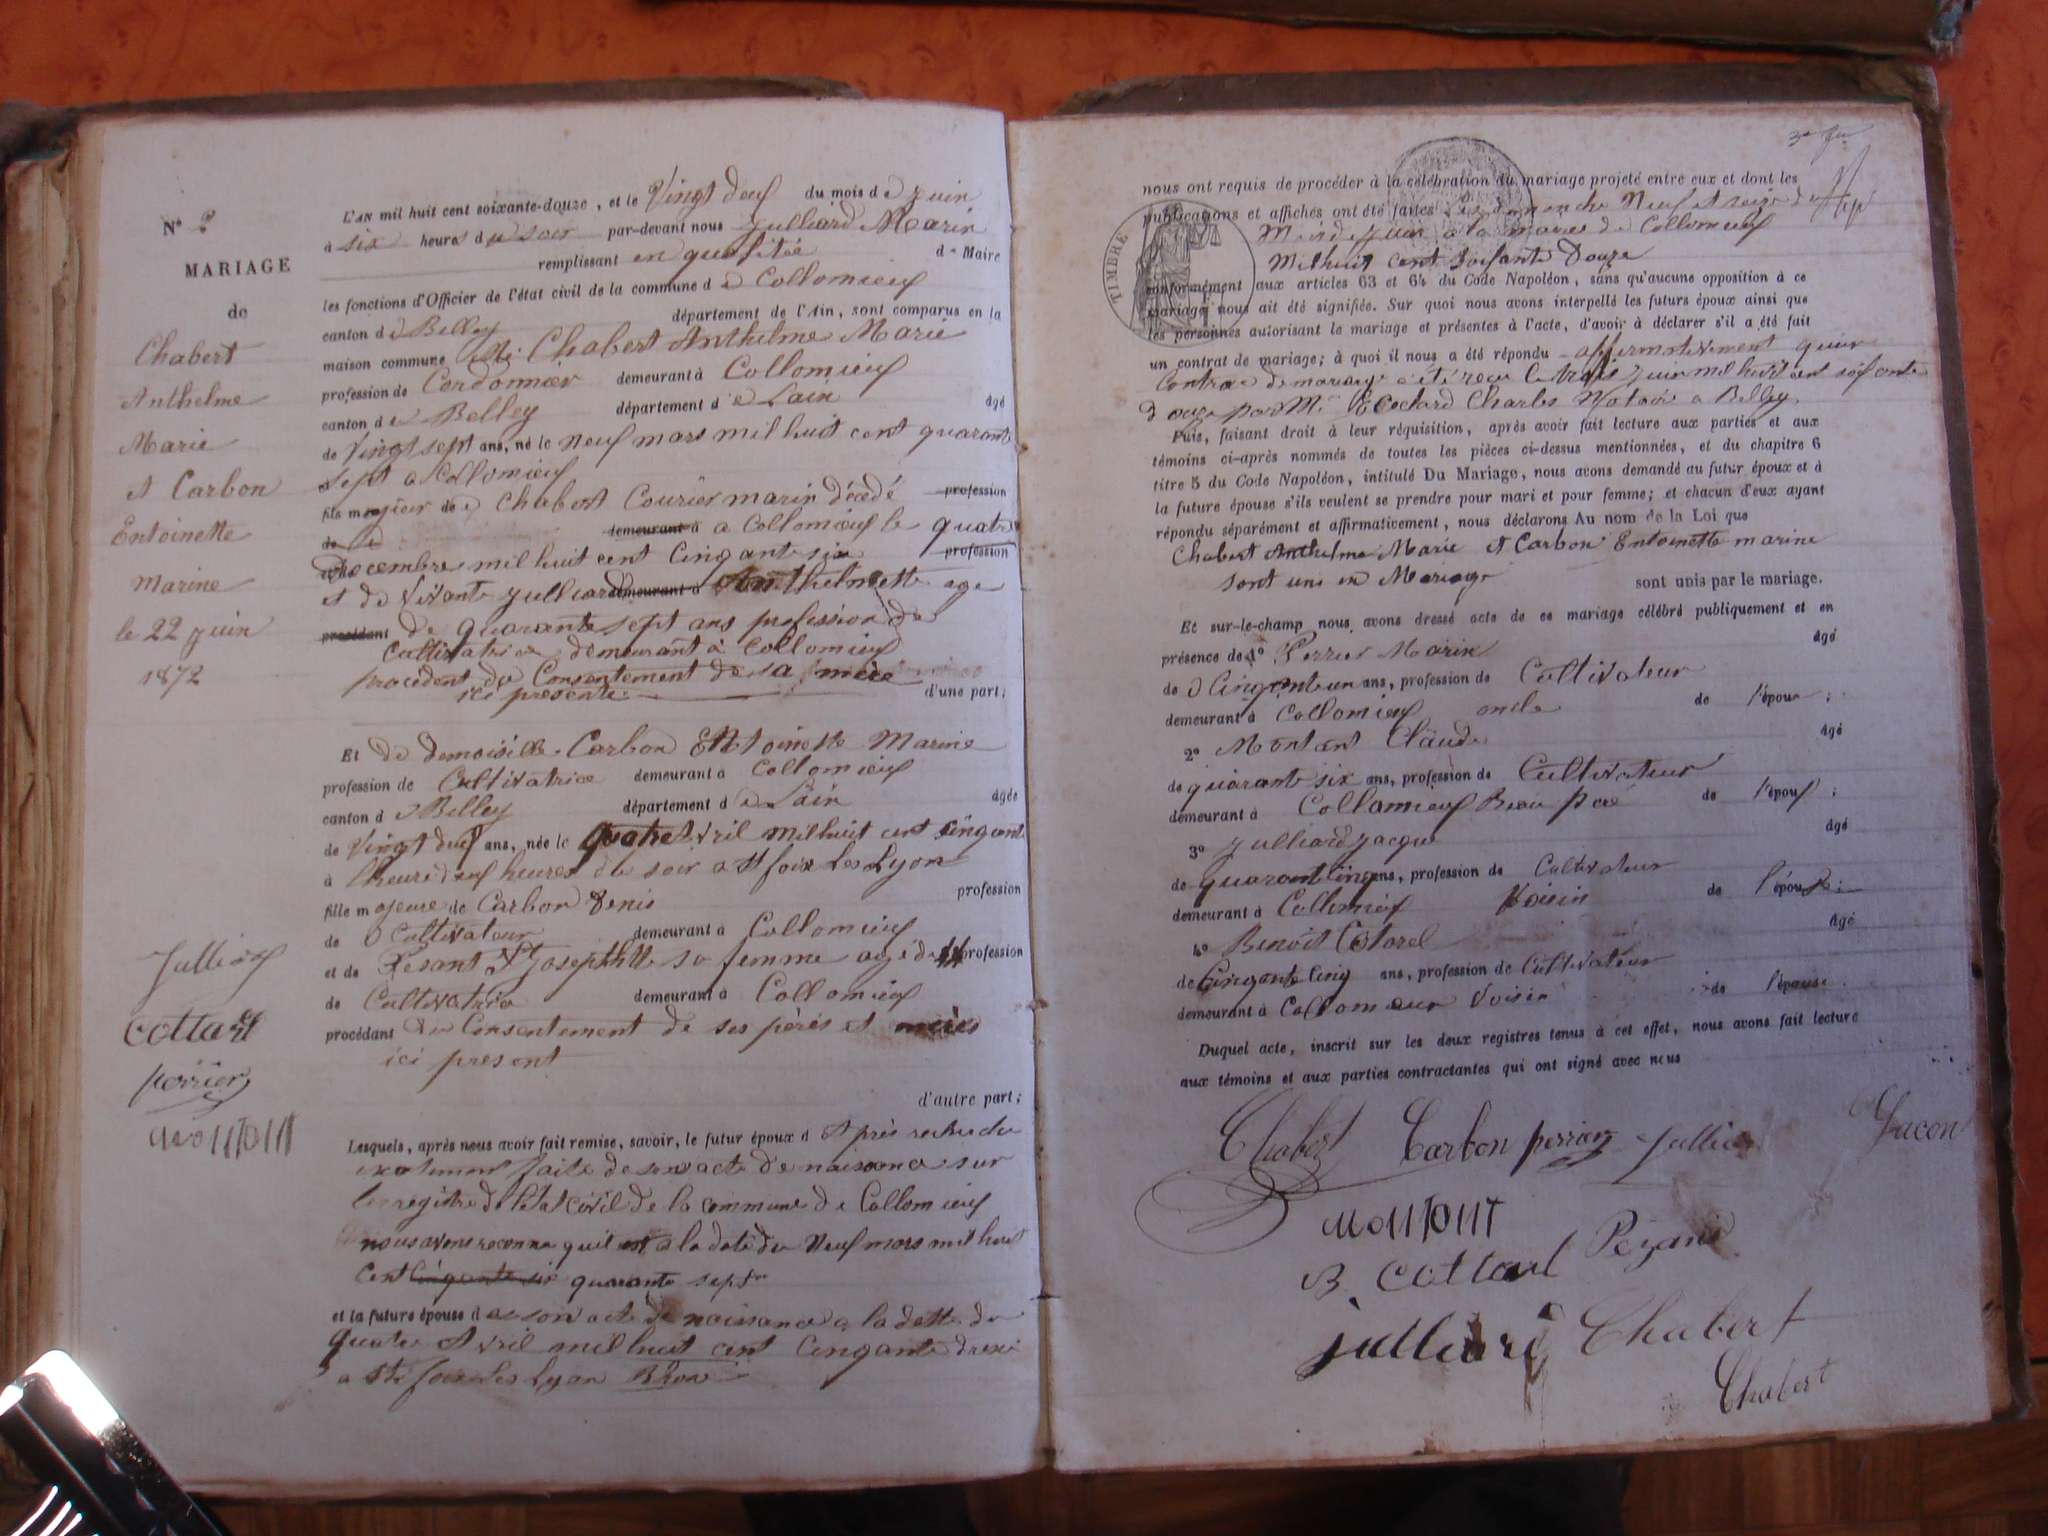 N° 2
MARIAGE
de
Chabert
Anthelme
Marie
et Carbon
Entoinette
Marine
le 22 juin
1872
Julliard
Cottard
perrier
montant
L'AN mil huit cent soixante-douze, et le Vingt deux du mois de juin
à six heures du soir par-devant nous Julliard Marin
remplissant en qualitée de Maire
les fonctions d'Officier de l'état civil de la commune de Collomieux
canton de Belley département de l'Ain, sont comparus en la
maison commune Chabert Anthelme Marie
profession de Cordonnier demeurant à Collomieux
canton de Belley département de Lain âgé
de Vingt sept ans, né le neuf mars mil huit cent quarante
sept a Collomieux
fils majeur de Chabert Courier marin décédé profession
de demeurant à a Collomieux le quatre
decembre mil huit cent Cinquante six profession
et de Vivante Julliard demeurant à Anthelmette age
procédant de quarante sept ans profession de
Cultivatrice demeurant à Collomieux
procedent du Consentement de sa mère
ici presente d'une part;
Et de demoiselle Carbon Entoinette Marine
profession de Cultivatrice demeurant à Collomieux
canton de Belley département de Lain âgée
de Vingt deux ans, née le quatre Avril mil huit cent Cinquante
à lheure deux heures du soir a St foix Les Lyon
fille majeure de Carbon Denis profession
de Cultivateur demeurant à Collomieux
et de Pesant Josephtte sa femme age de profession
de Cultivatrice demeurant à Collomieux
procédant du Consentement de ses pères et mères
ici present
d'autre part;
Lesquels, après nous avoir fait remise, savoir, le futur époux d Après recherche
faite de son acte de naissance sur
les registre de letat civil de la commune de Collomieux
nous avons reconnu quil est a la date du Neuf mars mil huit
cent cinquante six quarante sept
et la future épouse de son acte de naissance a la datte du
quatre Avril mil huit cent Cinquante
a Ste foix Les Lyon
nous ont requis de procéder à la célébration du mariage projeté entre eux et dont les
publications et affiches ont été faites Les dimanche Neuf et seize du
Mois de Juin a la mairie de Collomieux
Mil huit cent Soisante Douze
TIMBRE
conformément aux articles 63 et 64 du Code Napoléon, sans qu'aucune opposition à ce
mariage nous ait été signifiée. Sur quoi nous avons interpellé les futurs époux ainsi que
les personnes autorisant le mariage et présentes à l'acte, d'avoir à déclarer s'il a été fait
un contrat de mariage; à quoi il nous a été répondu affirmativement quun
Contrac de mariage a été recu le trois Juin mil huit cent soisante
douze par Me Charles Notaire a Belley.
Puis, faisant droit à leur réquisition, après avoir fait lecture aux parties et aux
témoins ci-après nommés de toutes les pièces ci-dessus mentionnées, et du chapitre 6
titre 5 du Code Napoléon, intitulé Du Mariage, nous avons demandé au futur époux et à
la future épouse s'ils veulent se prendre pour mari et pour femme; et chacun d'eux ayant
répondu séparément et affirmativement, nous déclarons Au nom de la Loi que
Chabert Anthelme Marie et Carbon Entoinette marine
sont uni en Mariage sont unis par le mariage.
Et sur-le-champ nous avons dressé acte de ce mariage célébré publiquement et en
présence de 1° Perrier Marin âgé
de Cinquante un ans, profession de Cultivateur
demeurant à Collomieux oncle de l'épour;
2° Montant Claude âgé
de quarante six ans, profession de Cultivateur
demeurant à Collomieux Beau pere de l'époux;
3° Julliard Jacque âgé
de quarant Cinq ans, profession de Cultivateur
demeurant à Collomieux Voisin de l'épouse;
4° Benoit Cotarel âgé
de Cinquante Cinq ans, profession de Cultivateur
demeurant à Collomieux Voisin de l'épouse.
Duquel acte, inscrit sur les deux registres tenus à cet effet, nous avons fait lecture
aux témoins et aux parties contractantes qui ont signé avec nous
Chabert Carbon perrier Julliard Jacon
montant
B. Cottard Pezant
julliard Chabert
Chabert